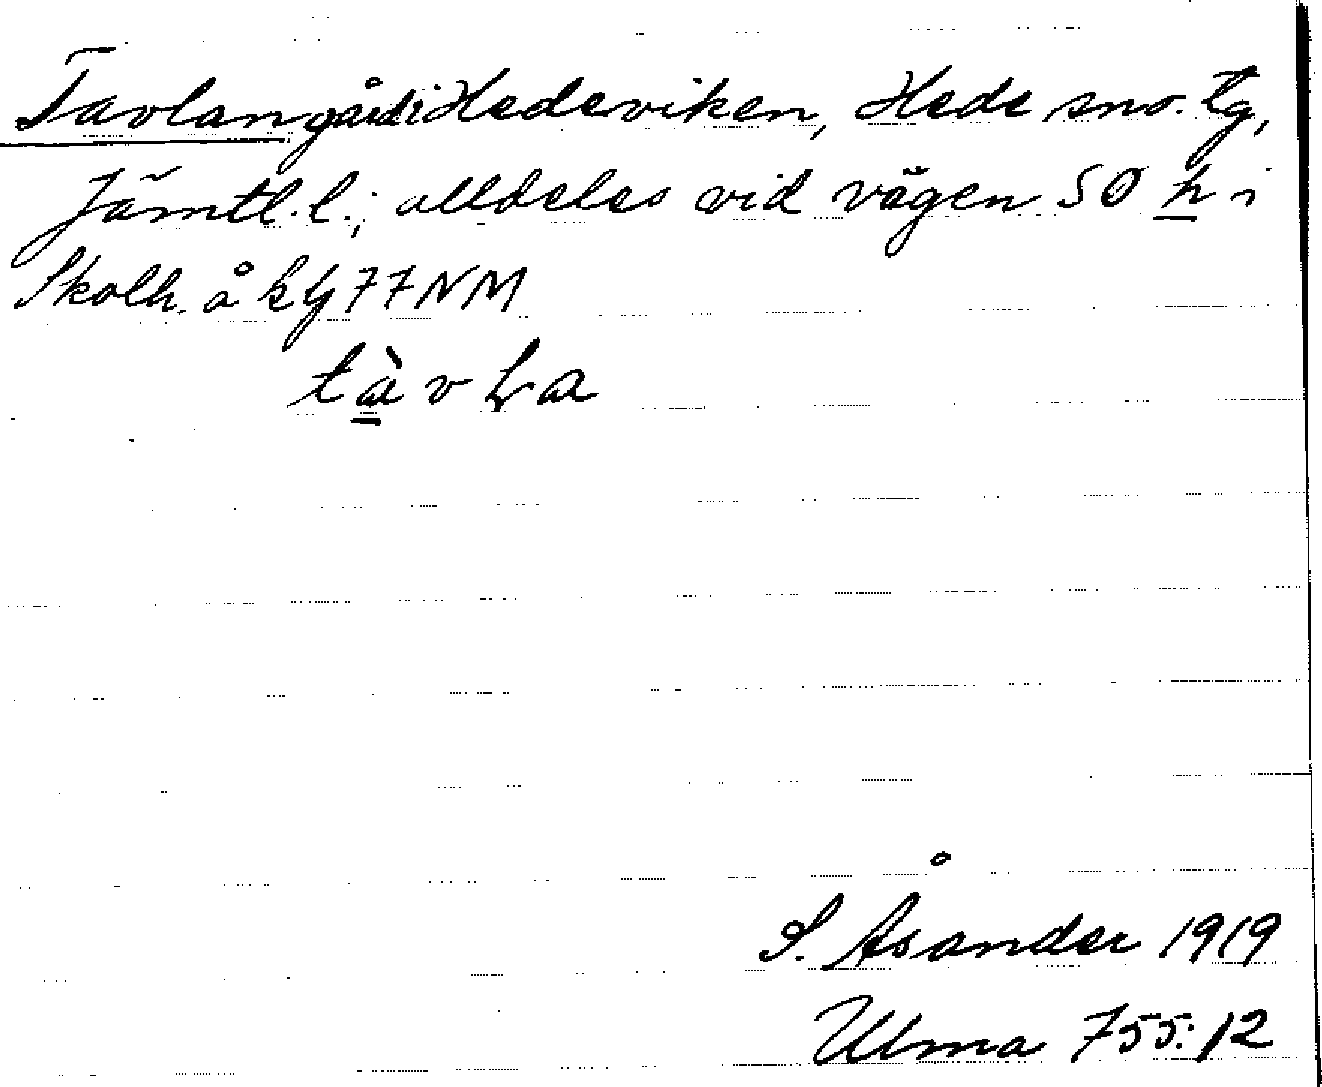 Tavlan gård i Hedeviken, Hede sns. tg,
Jämtl. l.; alldeles vid vägen 50 n i
Skolh. å kg 77NM
tàvLa
S. Åsander 1919
Ulma 755:12